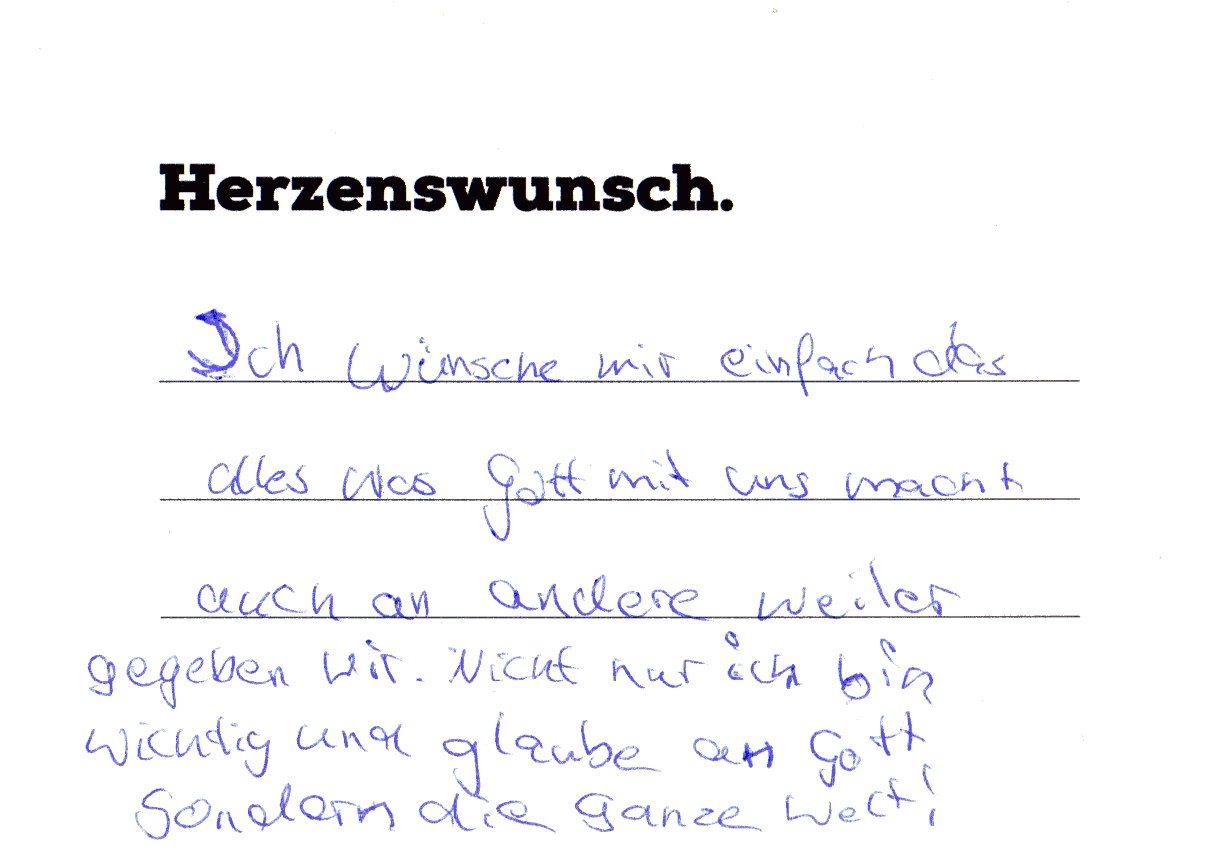 Herzenswunsch.
Ich wünsche mir einfach das
alles was Gott mit uns macht
auch an andere weiter
gegeben wir. Nicht nur ich bin
wichtig und glaube an Gott
Sondern die ganze Welt!